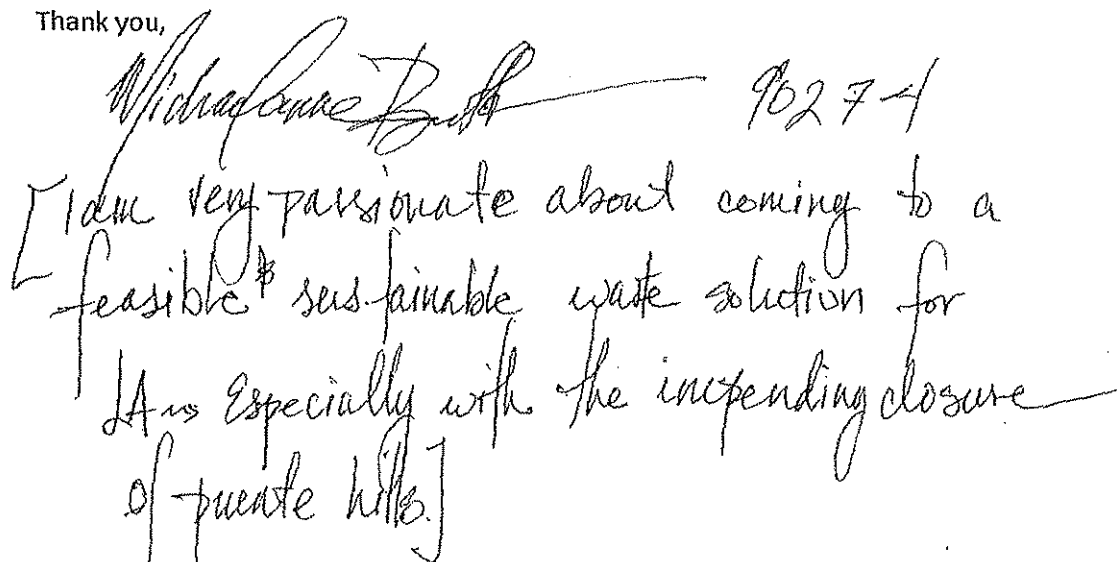 Thank you,
90274
[I am very passionate about coming to a
feasible & sustainable waste solution for
LA ~> Especially with the impending closure
of puente hills.]